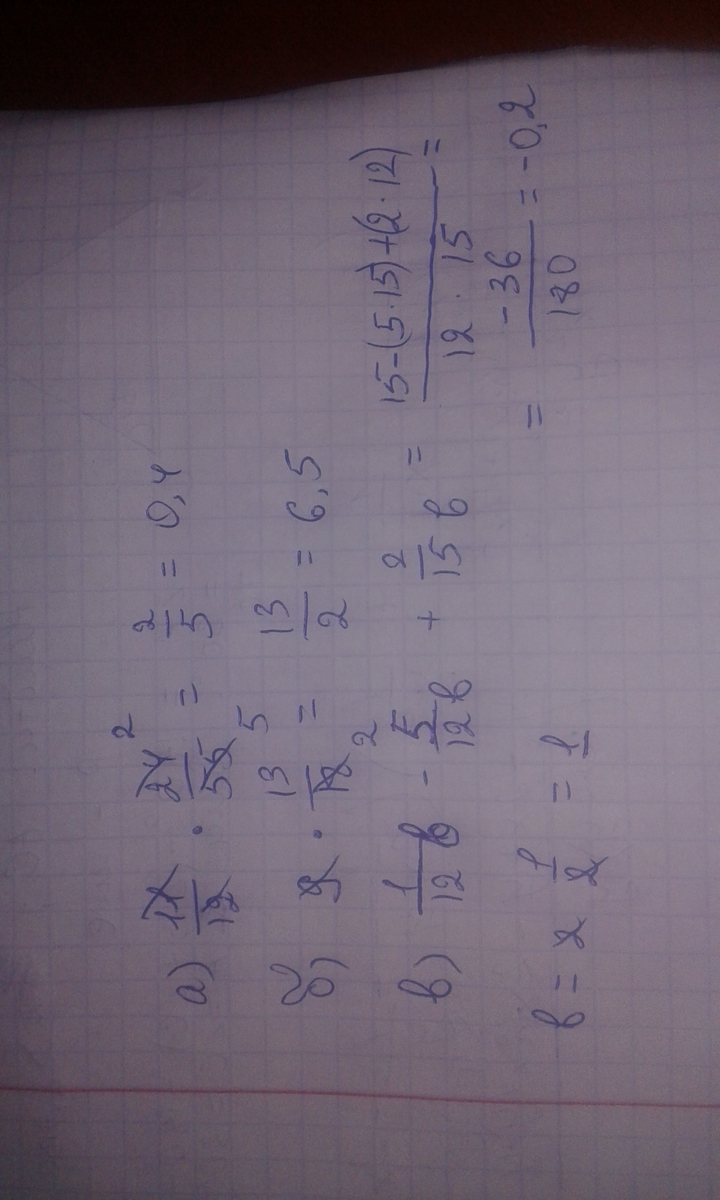 а) 11/12 · 24/55 = 2/5 = 0,4
б) 9 · 13/18 = 13/2 = 6,5
в) 1/12 в - 5/12 в + 2/15 в = 15-(5·15)+(2·12) / 12 · 15 =
= -36/180 = -0,2
в = 2 1/2 = 1